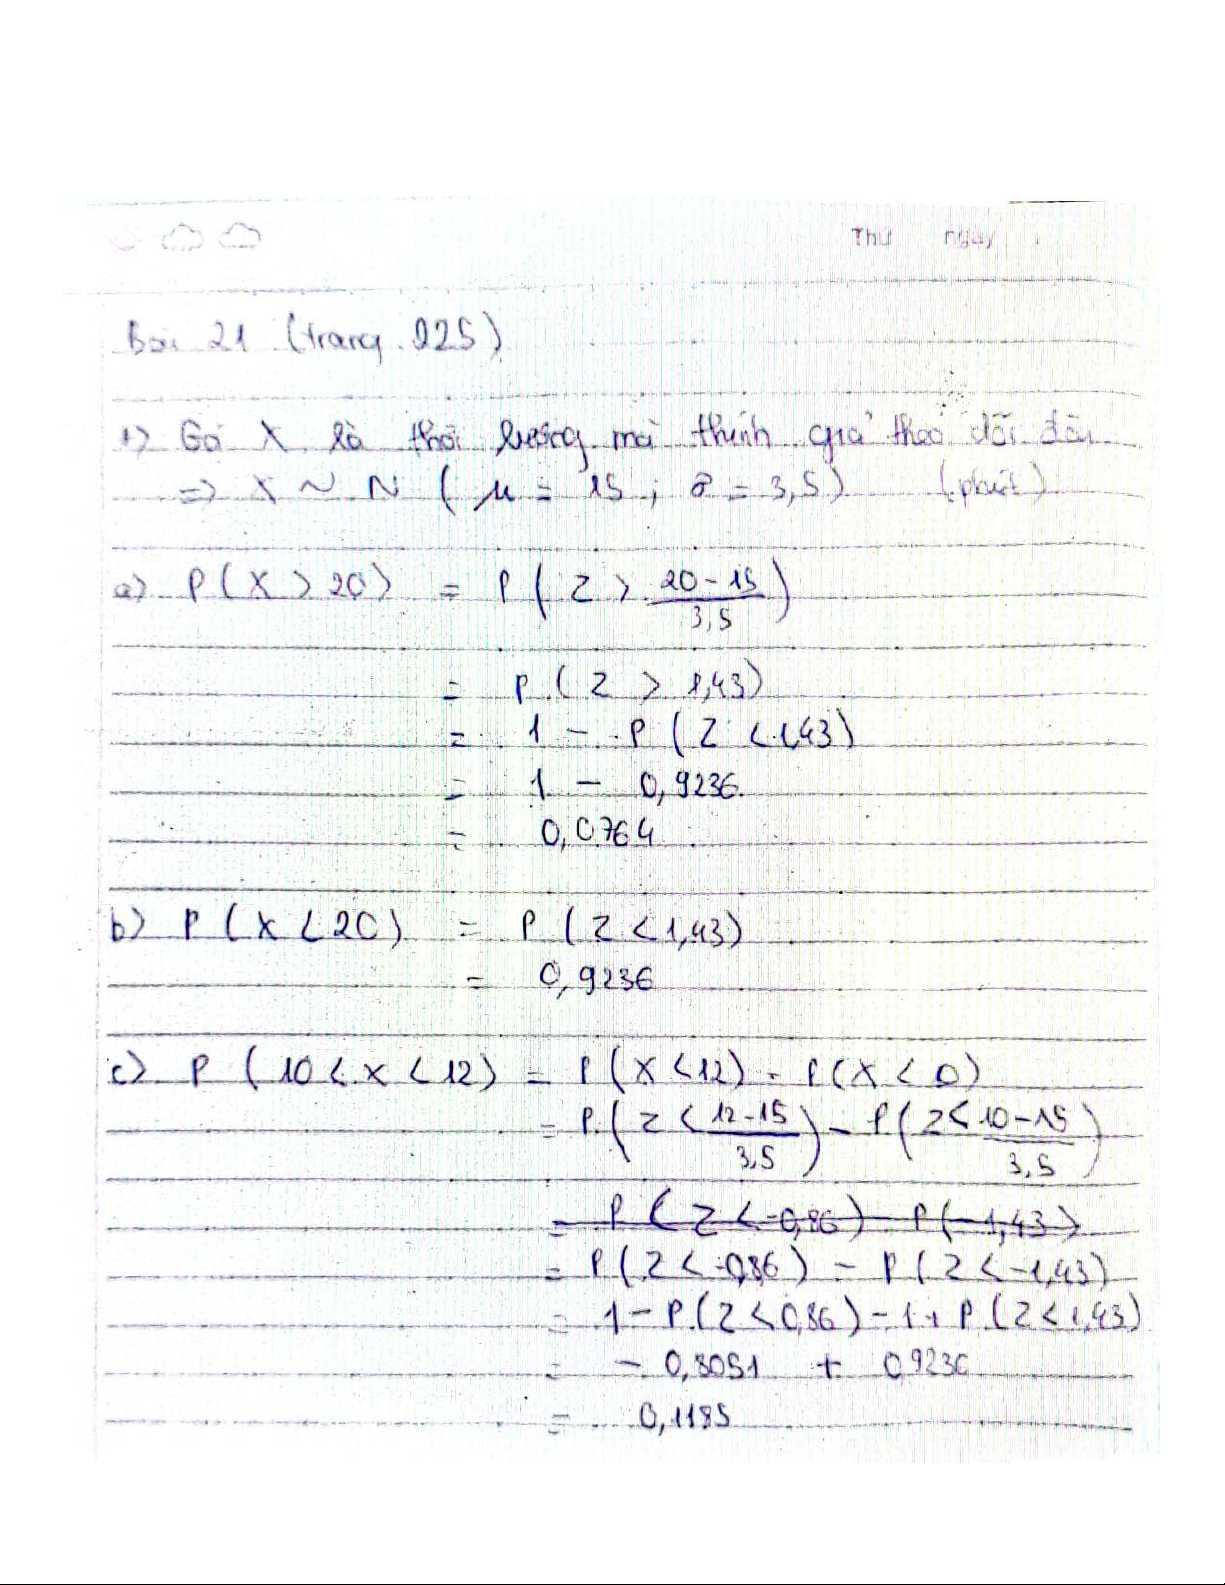 Thứ ngày
Bài 21 (trang 225)
1) Gọi X là thời lượng mà thính giả theo dõi đài
=> X ~ N ( μ = 15 ; σ = 3,5 ) (phút)
a) P ( X > 20 ) = P ( Z > \frac{20 - 15}{3,5} )
= P ( Z > 1,43 )
= 1 - P ( Z < 1,43 )
= 1 - 0,9236
= 0,0764
b) P ( X < 20 ) = P ( Z < 1,43 )
= 0,9236
c) P ( 10 < X < 12 ) = P ( X < 12 ) - P ( X < 0 )
= P ( Z < \frac{12 - 15}{3,5} ) - P ( Z < \frac{10 - 15}{3,5} )
= P ( Z < -0,86 ) - P ( -1,43 )
= P ( Z < -0,86 ) - P ( Z < -1,43 )
= 1 - P ( Z < 0,86 ) - 1 + P ( Z < 1,43 )
= - 0,8051 + 0,9236
= 0,1185